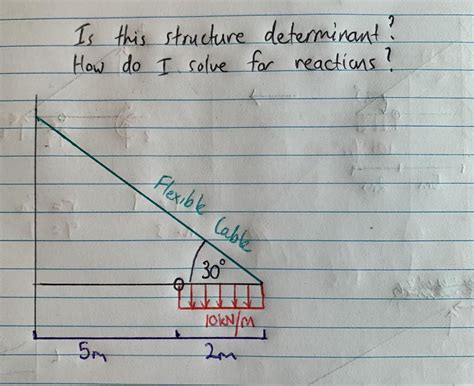 Is this structure determinant?
How do I solve for reactions?
Flexible Cable
30°
10kN/M
5m
2m